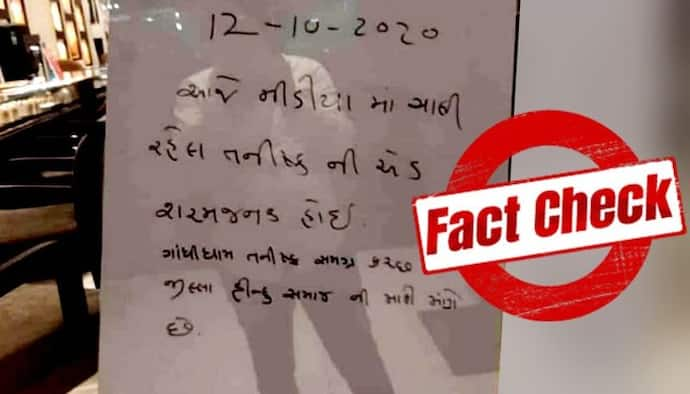 12-10-2020
આજે મીડીયા માં આવી
રહેલ તનીષ્ક ની એડ
શરમજનક હોઈ.
ગાંધીધામ તનીષ્ક સમગ્ર કચ્છ
જીલ્લા હીન્દુ સમાજ ની માફી માંગે
છે.
Fact Check